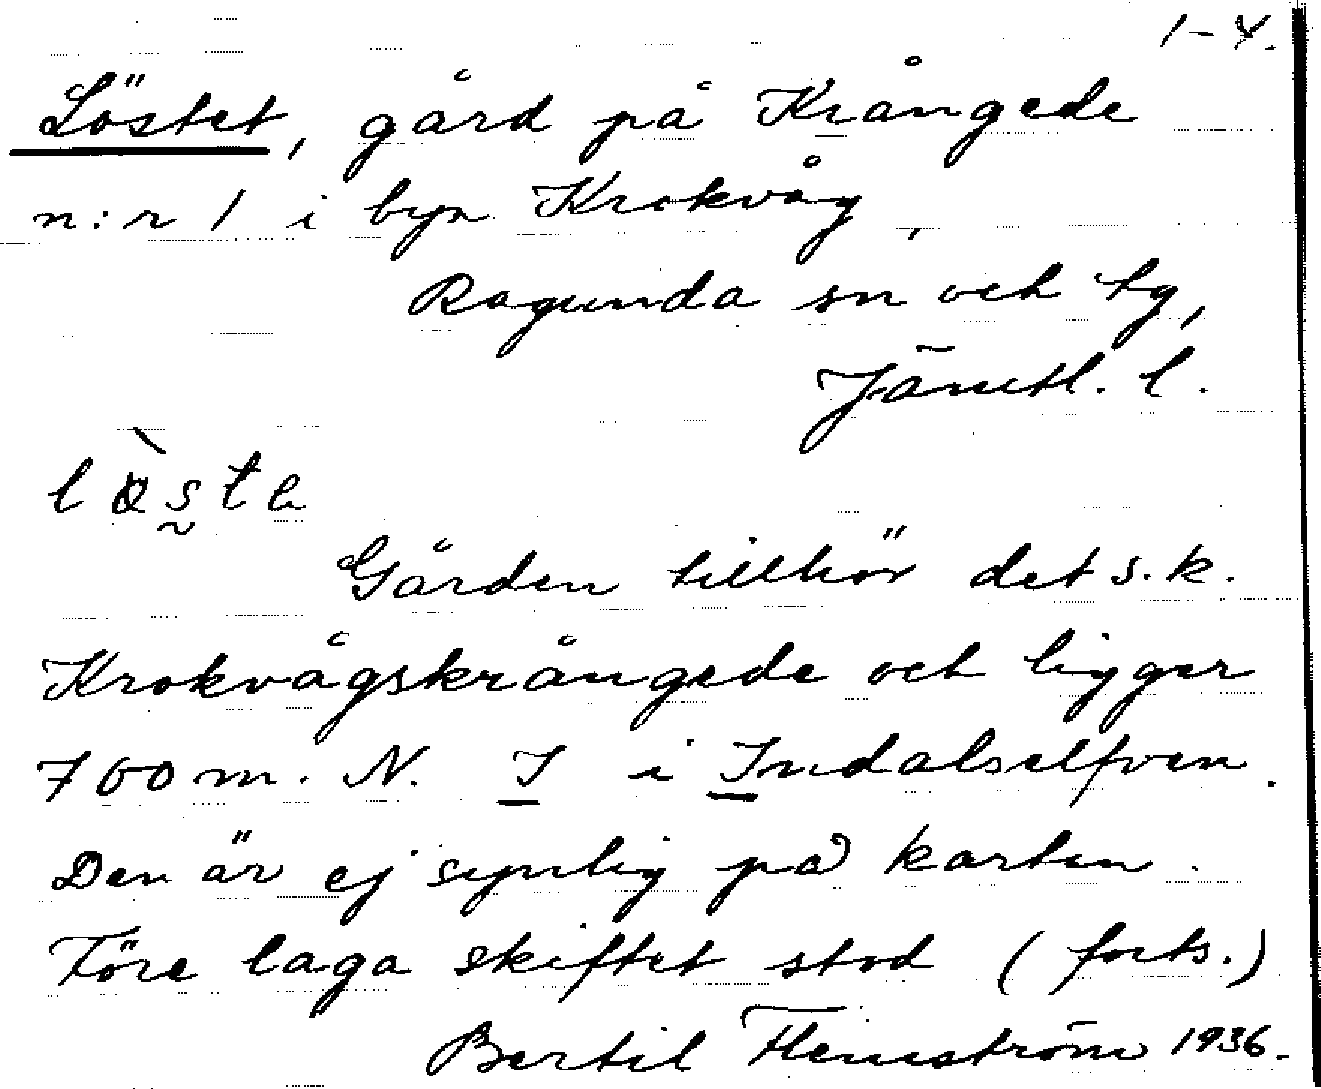 1-4.
Löstet, gård på Krångede
n:r 1 i byn Krokvåg,
Ragunda sn och tg,
Jämtl. l.
Gården tillhör det s.k.
Krokvågskrångede och ligger
700 m. N. I i Indalselfven.
Den är ej synlig på kartan.
Före laga skiftet stod (forts.)
Bertil Flemström 1936.